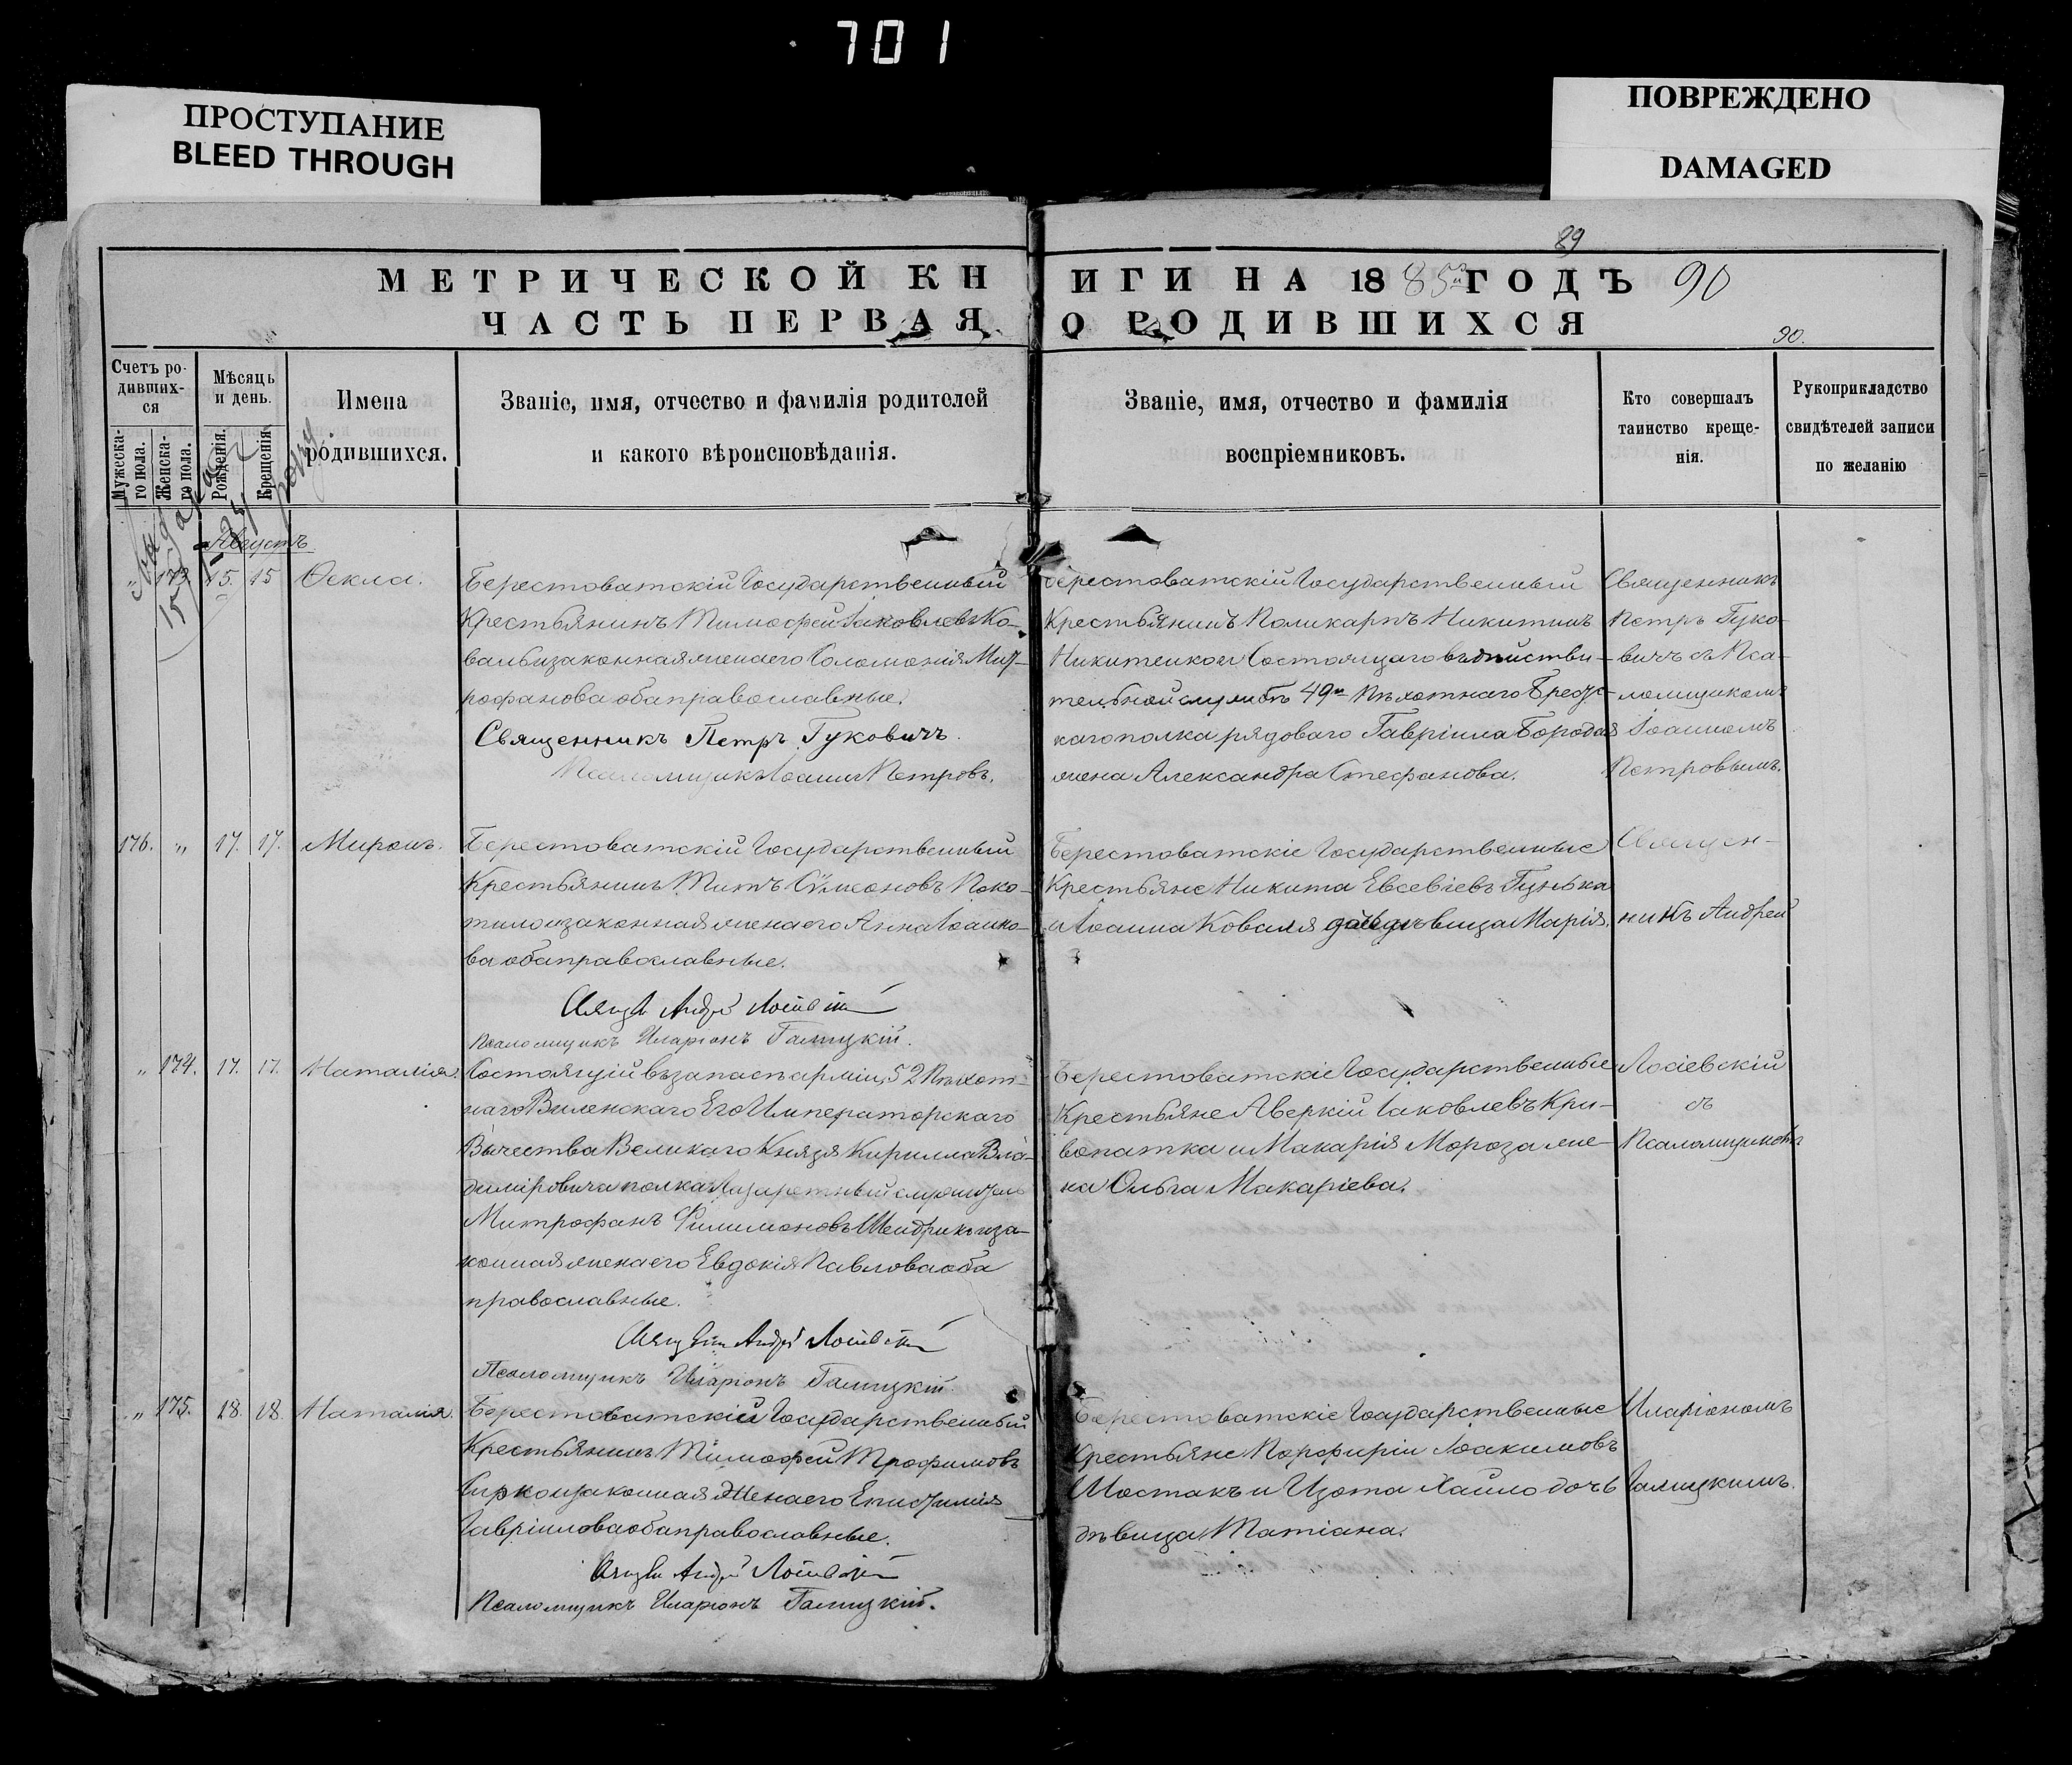 701
ПРОСТУПАНИЕ
BLEED THROUGH
ПОВРЕЖДЕНО
DAMAGED
89
МЕТРИЧЕСКОЙ КНИГИ НА 1885й ГОДЪ 90
ЧАСТЬ ПЕРВАЯ О РОДИВШИХСЯ
90.
Счетъ ро-
дивших-
ся
Мужеска-
го пола.
Женска-
го пола.
Мѣсяць
и день.
Рожденія.
Крещенія.
Имена
родившихся.
Званіе, имя, отчество и фамилія родителей
и какого вѣроисповѣданія.
Званіе, имя, отчество и фамилія
воспріемниковъ.
Кто совершалъ
таинство креще-
нія.
Рукоприкладство
свидѣтелей записи
по желанію
Августъ
" 173. 15. 15 Ѳекла.
Берестоватскій Государственный
Крестьянинъ Тимофей Іаковлевъ Ко-
валь и законная жена его Соломонія Мит-
рофанова оба православные.
Священникъ Петръ Гуковичъ.
Псаломщикъ Іоаннъ Петровъ.
Берестоватскій Государственный
Крестьянинъ Поликарпъ Никитинъ
Никитенко и Состоящаго въ дѣйстви-
тельной службѣ 49го Пѣхотнаго Брест-
каго полка рядоваго Гавріила Бородая
жена Александра Стефанова.
Священникъ
Петръ Гуко-
вичъ съ Пса-
ломщикомъ
Іоанномъ
Петровымъ.
176. " 17. 17. Миронъ.
Берестоватскій Государственный
Крестьянинъ Титъ Сѵмеоновъ Поко-
тило и законная жена его Анна Іоанно-
ва оба православные.
Андрей
Псаломщикъ Иларіонъ Галицкій.
Берестоватскіе Государственные
Крестьяне Никита Евсевіевъ Гунька
и Іоанна Коваля дѣвица Марія.
Священ-
никъ Андрей
" 174. 17. 17. Наталія.
Состоящій въ запасѣ арміи, 52 Пѣхот-
наго Виленскаго Его Императорскаго
Высочества Великаго Князя Кирилла Вла-
диміровича полка Лазаретный служитель
Митрофанъ Филимоновъ Шендрикъ и за-
конная жена его Евдокія Павлова оба
православные.
Андрей
Псаломщикъ Иларіонъ Галицкій.
Берестоватскіе Государственные
Крестьяне Аверкій Іаковлевъ Кри-
вопатка и Макарія Мороза же-
на Ольга Макаріева.
Лосіевскій
съ
Псаломщикомъ
" 175. 18. 18. Наталія.
Берестоватскій Государственный
Крестьянинъ Тимофей Трофимовъ
Сирко и законная жена его Епистимія
Гавріилова оба православные.
Андрей
Псаломщикъ Иларіонъ Галицкій.
Берестоватскіе Государственные
Крестьяне Порфирій Іоакимовъ
Шостакъ и Изота Хайло дочь
дѣвица Татіана.
Иларіономъ
Галицкимъ.